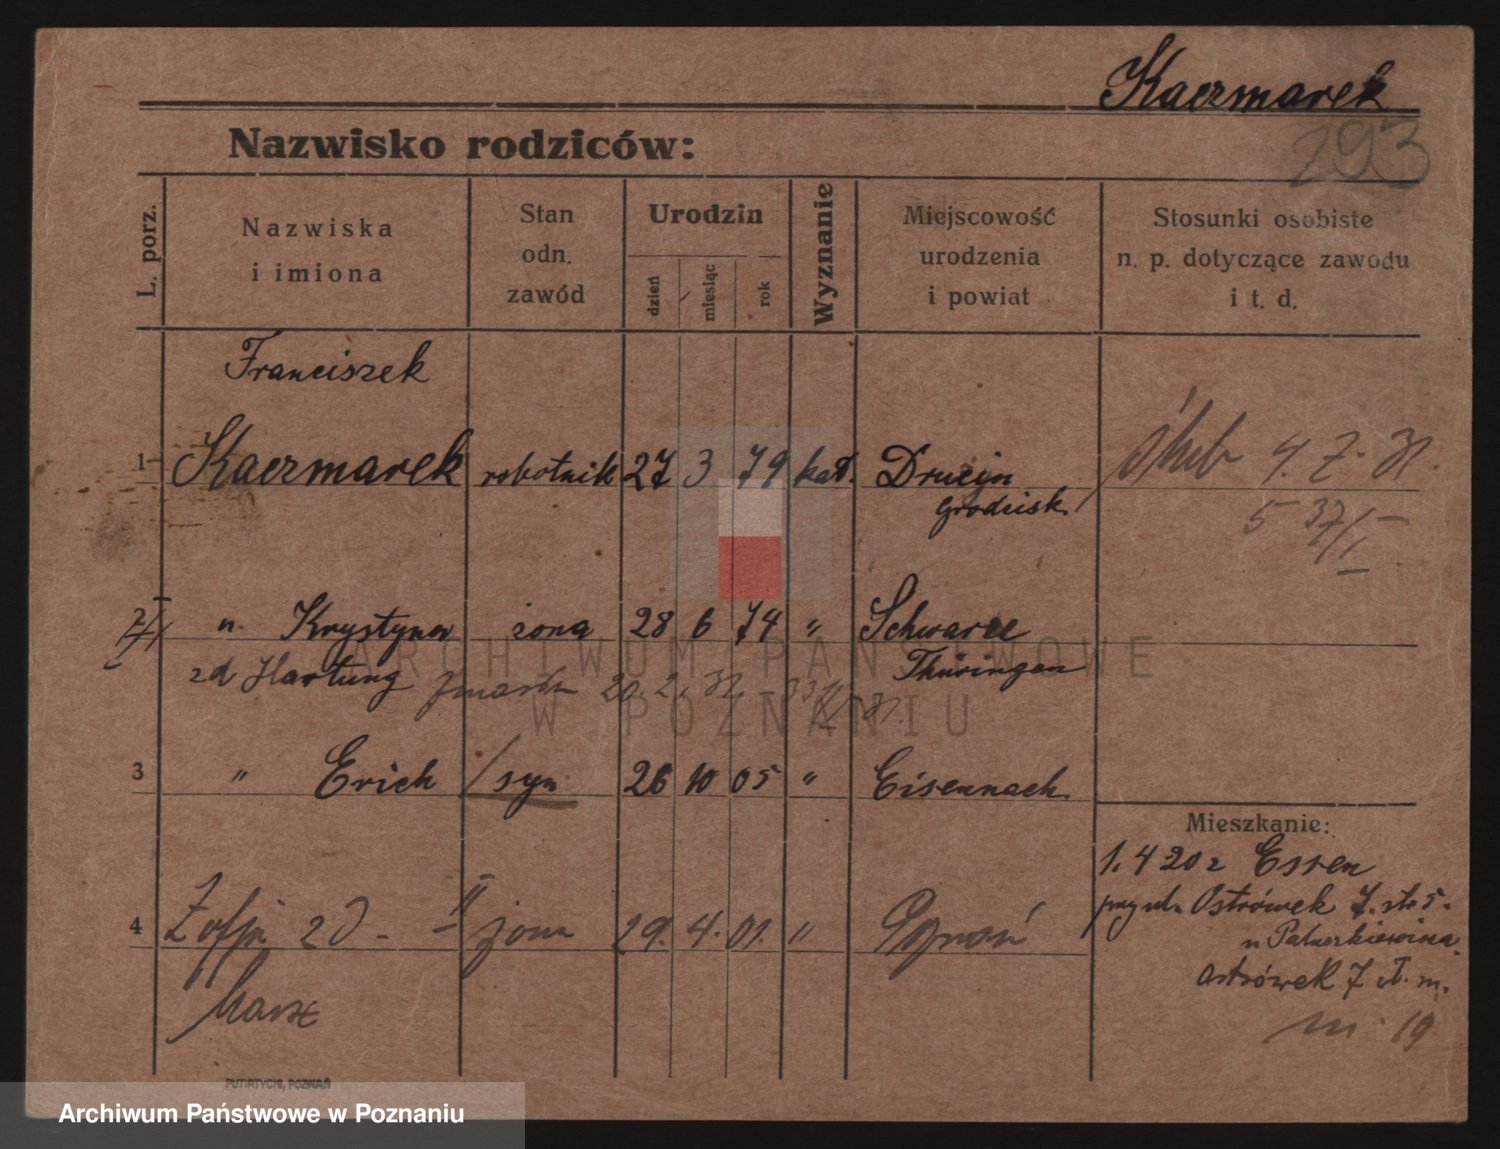 Kaczmarek
293
Nazwisko rodziców:
L. porz.
Nazwiska
i imiona
Stan
odn.
zawód
Urodzin
dzień
miesiąc
rok
Wyznanie
Miejscowość
urodzenia
i powiat
Stosunki osobiste
n. p. dotyczące zawodu
i t. d.
Franciszek
1 Kaczmarek robotnik 27 3 79 kat. Drucyn ślub 4. 7. 31.
Grodzisk 5 37/I
2 n. Krystyna żona 28 6 74 " Schwarze
zd Hartung zmarła 20. 2. 31. Thüringen
3 " Erich syn 26 10 05 " Eisennach.
Mieszkanie:
1. 4 20 z Essen
przy ul. Ostrówek 7. str 5.
4 Zofja zd - II żona 29. 4. 01. " Poznań
u Paluszkiewicza
Ostrówek 7 wł. m.
m. 19
PUTIATYCKI, POZNAŃ
ARCHIWUM PAŃSTWOWE
W POZNANIU
Archiwum Państwowe w Poznaniu